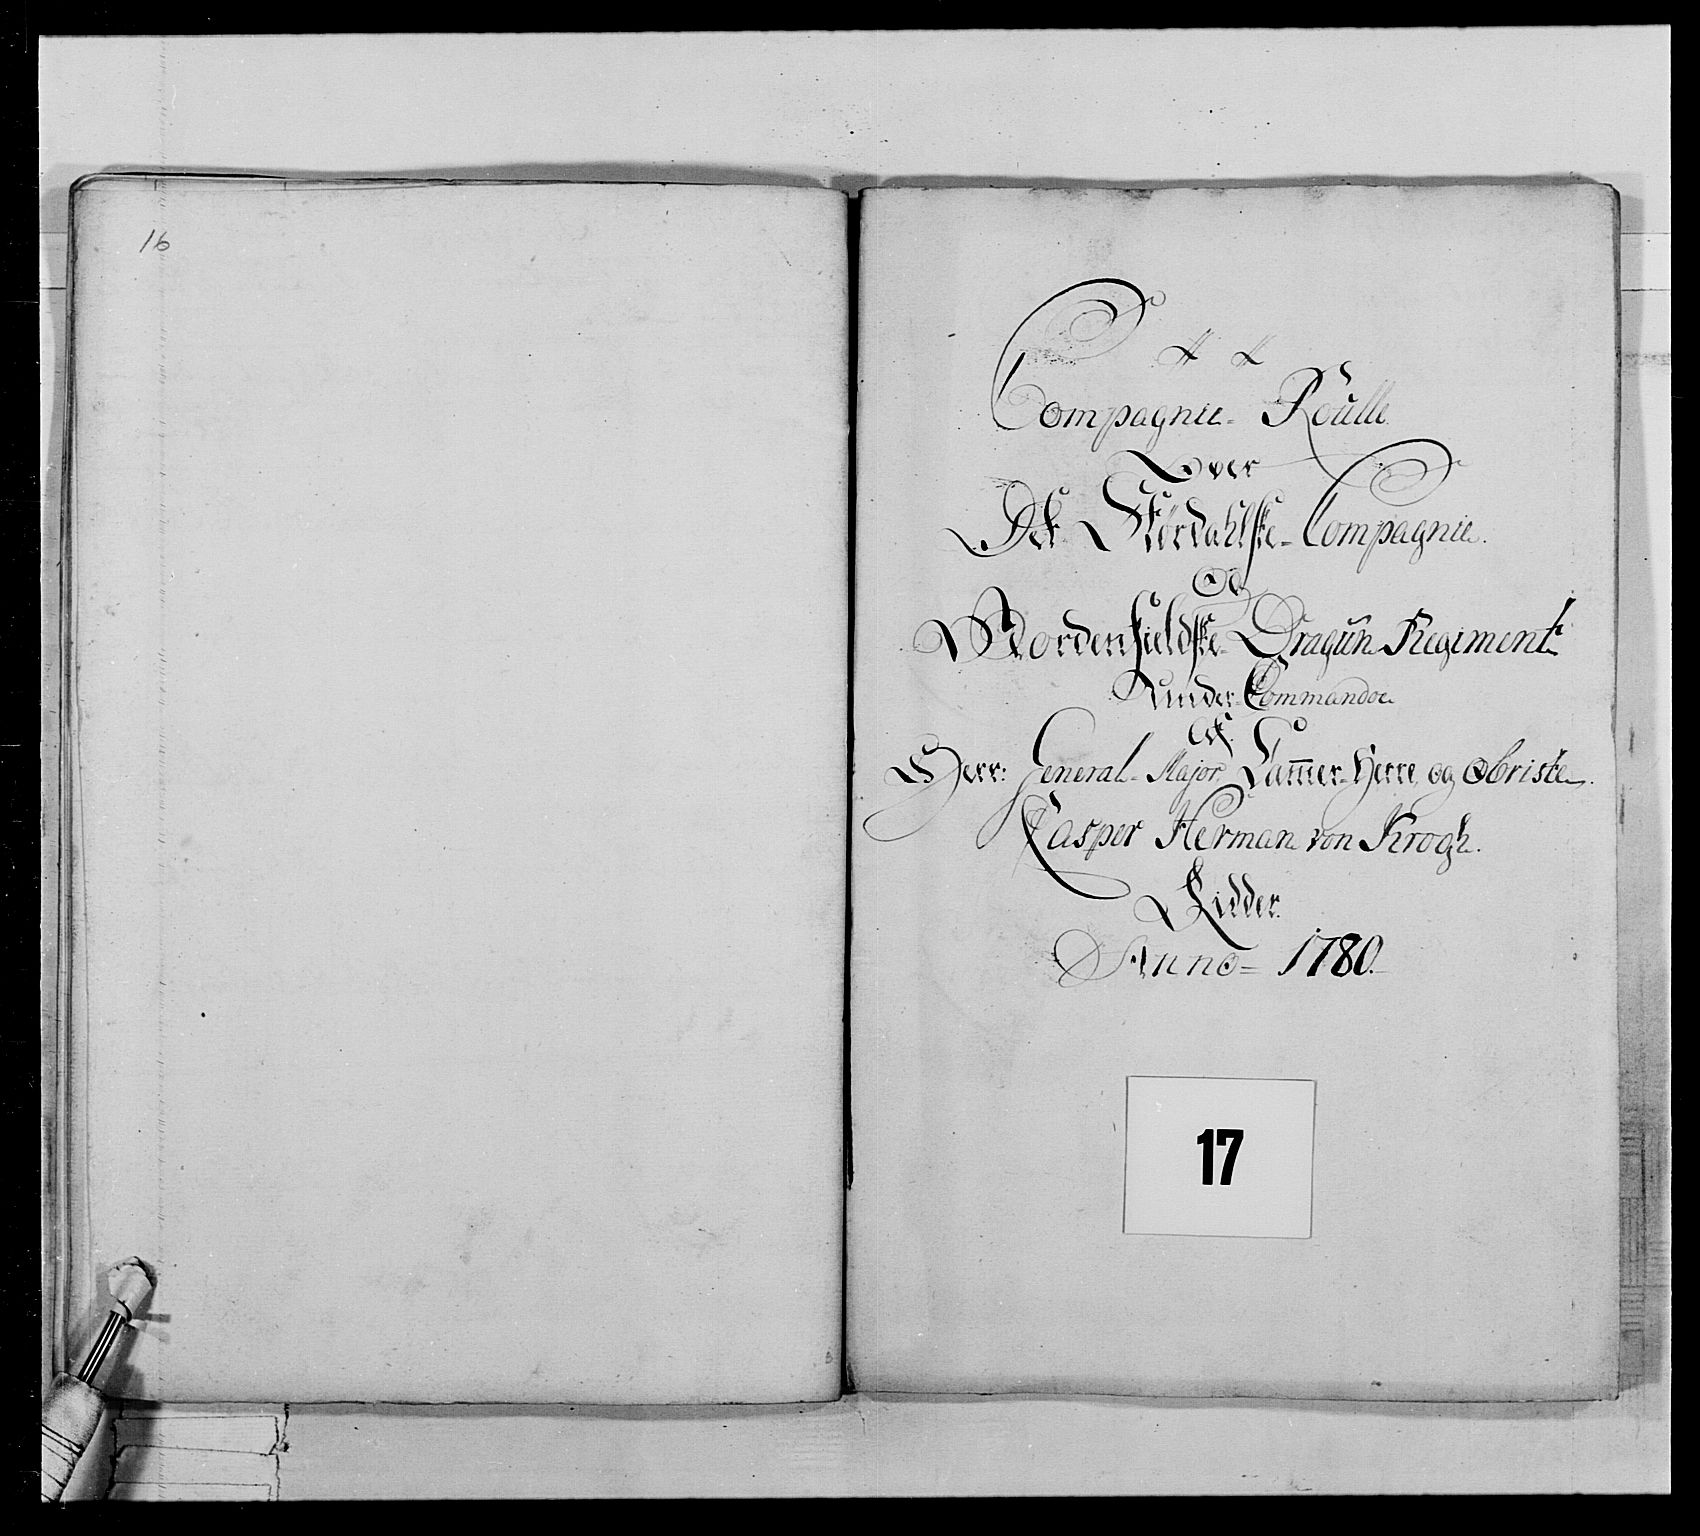 16
Compagnie- Roulle
Over
Det Størdahlske- Compagnie.
Og
Nordenfieldske- Dragun Regiment
Under Commandoe
Af
Herr: General- Major, Cam̅er-Herre, og Obriste
Casper Herman von Krogh.
Ridder.
Anno- 1780.
17